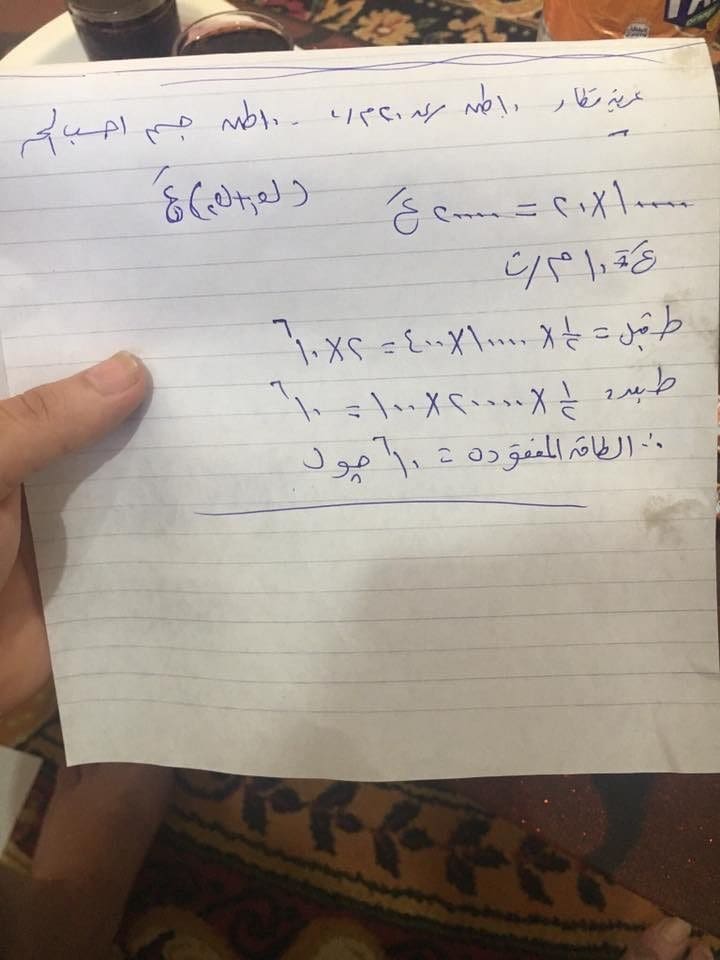 عربة قطار ١٠ طن سرعة ٢٠ م/ث ١٠ طن جسم احسب
١٠٠٠٠ × ٢٠ = ٢٠٠٠٠ عَ (ك١ + ك٢) عَ
عَ = ١٠ م/ث
ط قبل = ½ × ١٠٠٠٠ × ٤٠٠ = ٢ × ١٠^٦
ط بعد = ½ × ٢٠٠٠٠ × ١٠٠ = ١٠^٦
∴ الطاقة المفقودة = ١٠^٦ جول